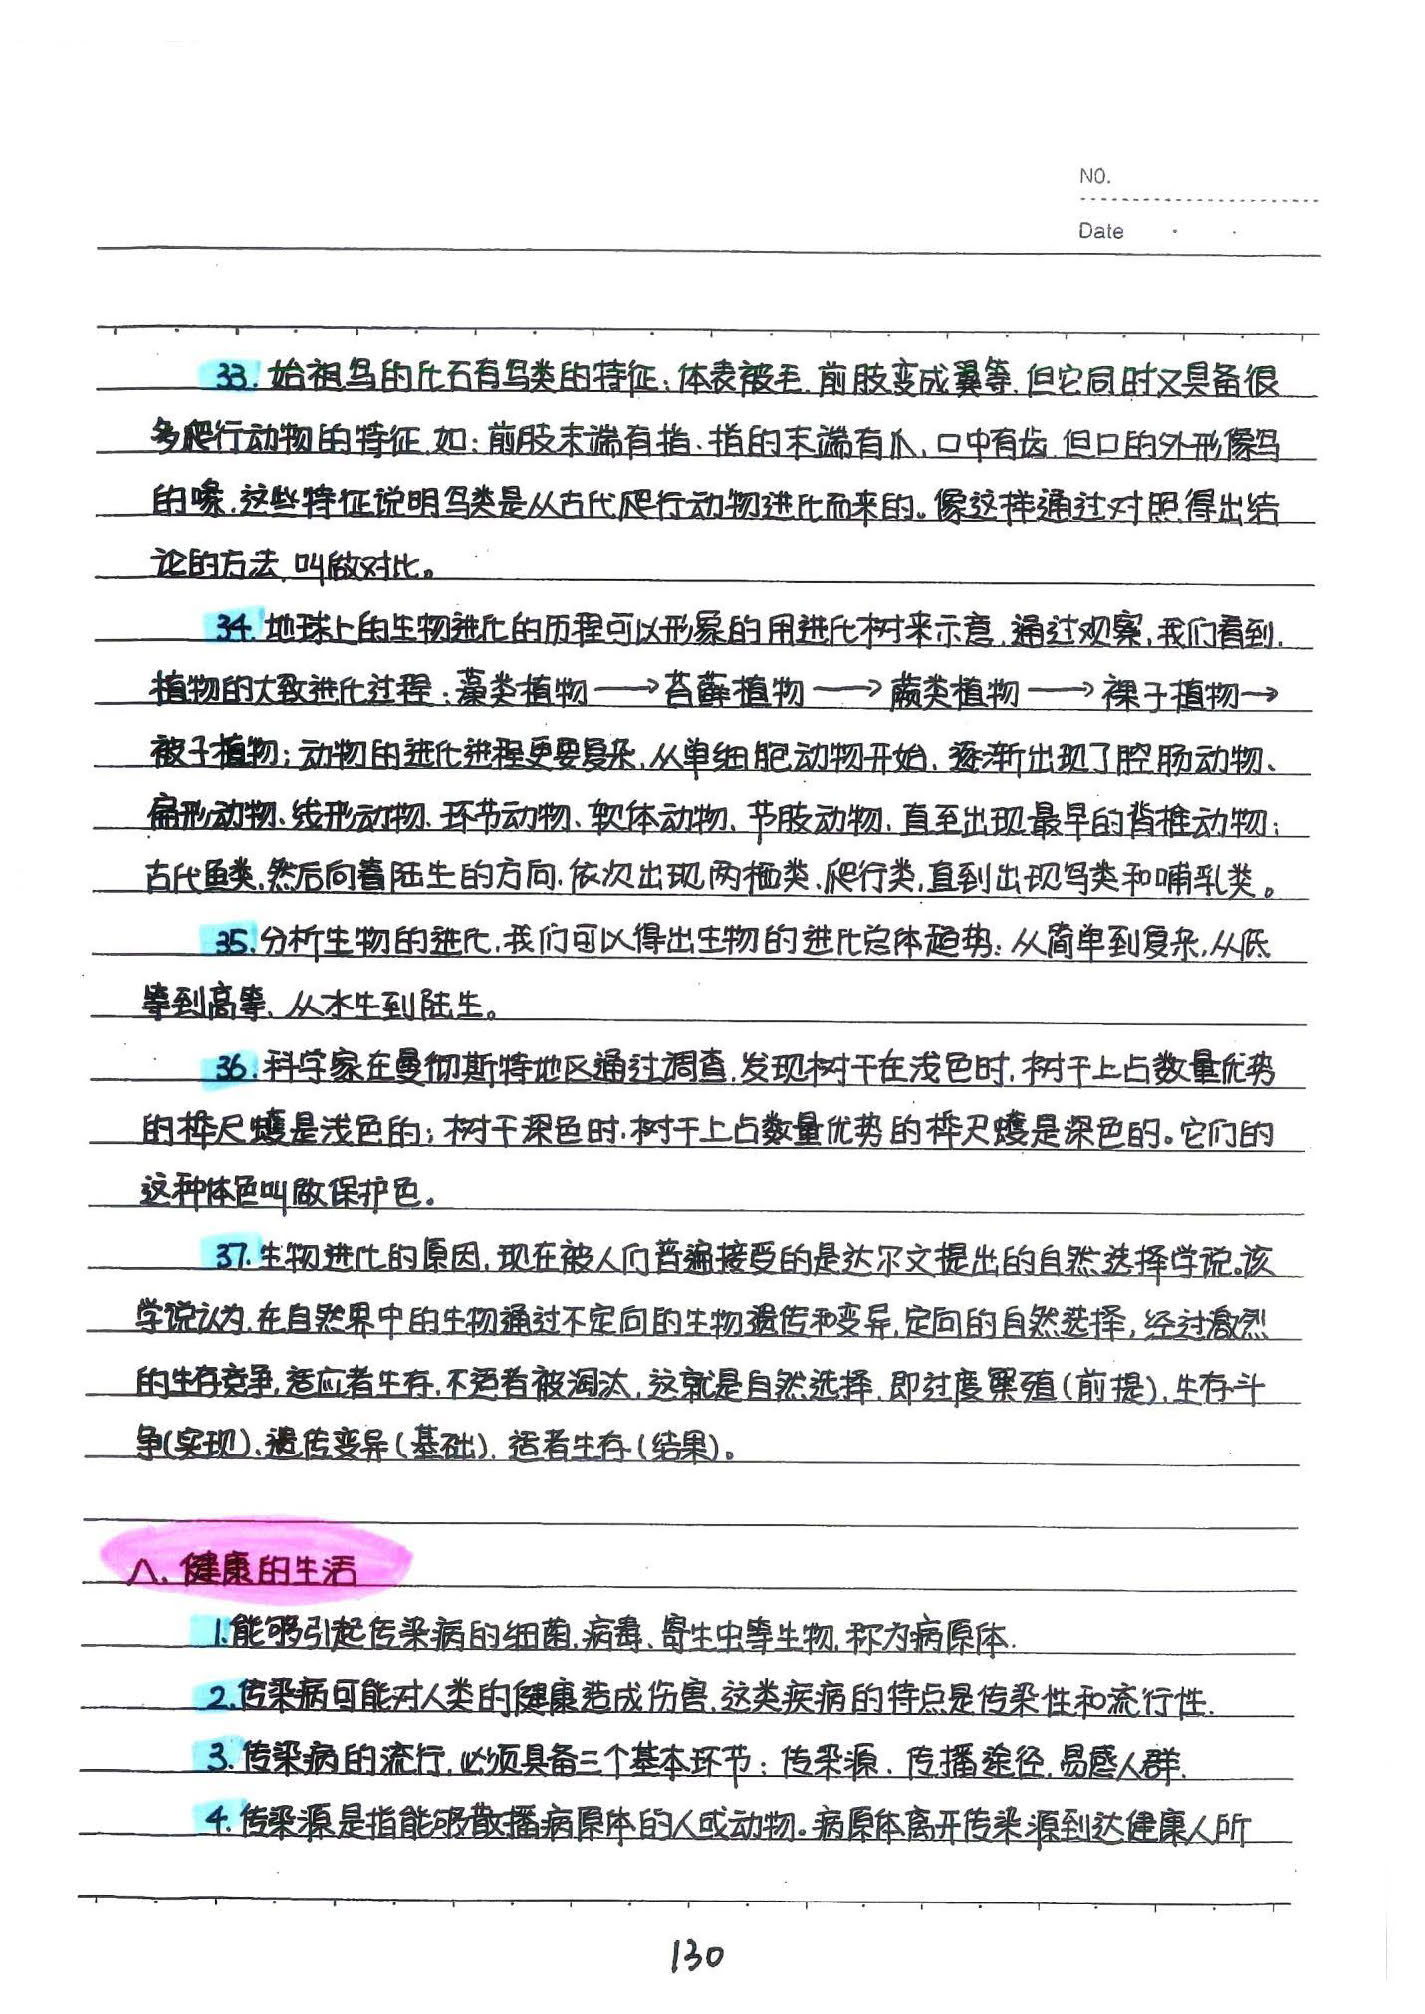 NO.
Date
33. 始祖鸟的化石有鸟类的特征:体表被毛,前肢变成翼等,但它同时又具备很
多爬行动物的特征,如:前肢末端有指、指的末端有爪、口中有齿,但口的外形像鸟
的喙,这些特征说明鸟类是从古代爬行动物进化而来的。像这样通过对照得出结
论的方法,叫做对比。
34. 地球上的生物进化的历程可以形象的用进化树来示意,通过观察,我们看到,
植物的大致进化过程:藻类植物→苔藓植物→蕨类植物→裸子植物→
被子植物;动物的进化进程更要复杂,从单细胞动物开始,逐渐出现了腔肠动物、
扁形动物、线形动物、环节动物、软体动物、节肢动物,直至出现最早的脊椎动物:
古代鱼类,然后向着陆生的方向,依次出现两栖类、爬行类,直到出现鸟类和哺乳类。
35. 分析生物的进化,我们可以得出生物的进化总体趋势:从简单到复杂,从低
等到高等,从水生到陆生。
36. 科学家在曼彻斯特地区通过调查,发现树干在浅色时,树干上占数量优势
的桦尺蠖是浅色的;树干深色时,树干上占数量优势的桦尺蠖是深色的。它们的
这种体色叫做保护色。
37. 生物进化的原因,现在被人们普遍接受的是达尔文提出的自然选择学说。该
学说认为,在自然界中的生物通过不定向的生物遗传和变异,定向的自然选择,经过激烈
的生存竞争,适应者生存,不适者被淘汰,这就是自然选择,即过度繁殖(前提),生存斗
争(实现)、遗传变异(基础)、适者生存(结果)。
八、健康的生活
1. 能够引起传染病的细菌、病毒、寄生虫等生物,称为病原体.
2. 传染病可能对人类的健康造成伤害,这类疾病的特点是传染性和流行性.
3. 传染病的流行,必须具备三个基本环节:传染源、传播途径,易感人群.
4. 传染源是指能够散播病原体的人或动物。病原体离开传染源到达健康人所
130